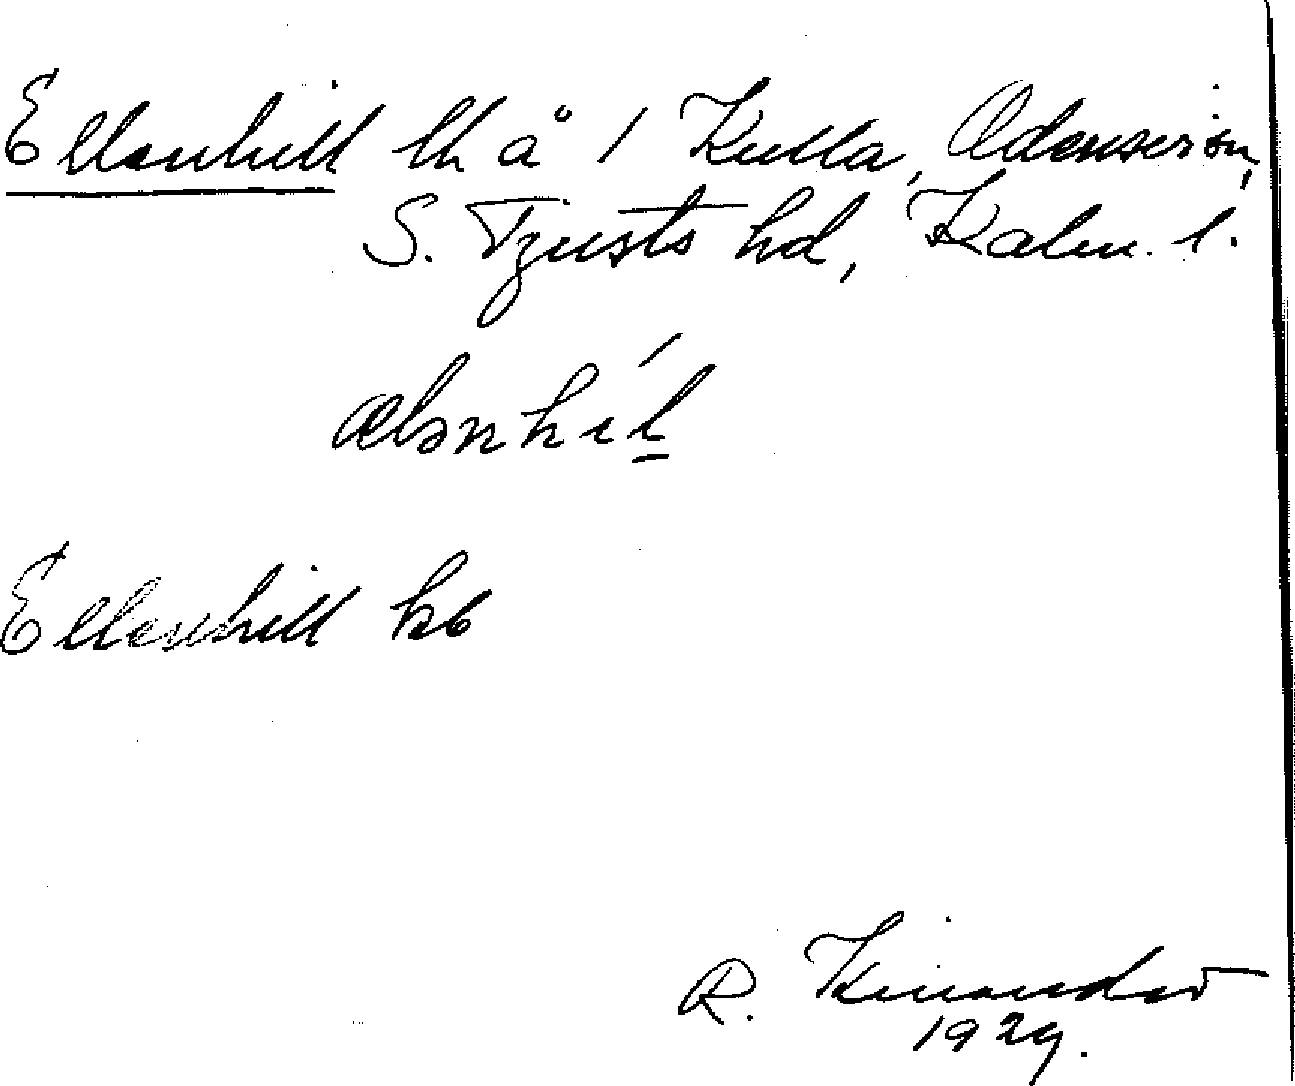 Ellenhill lh å 1 Kulla, Odensvi sn,
S. Tjusts hd, Kalm. l.
ælənhíl
Ellenhill kb
R. Kinander
1929.